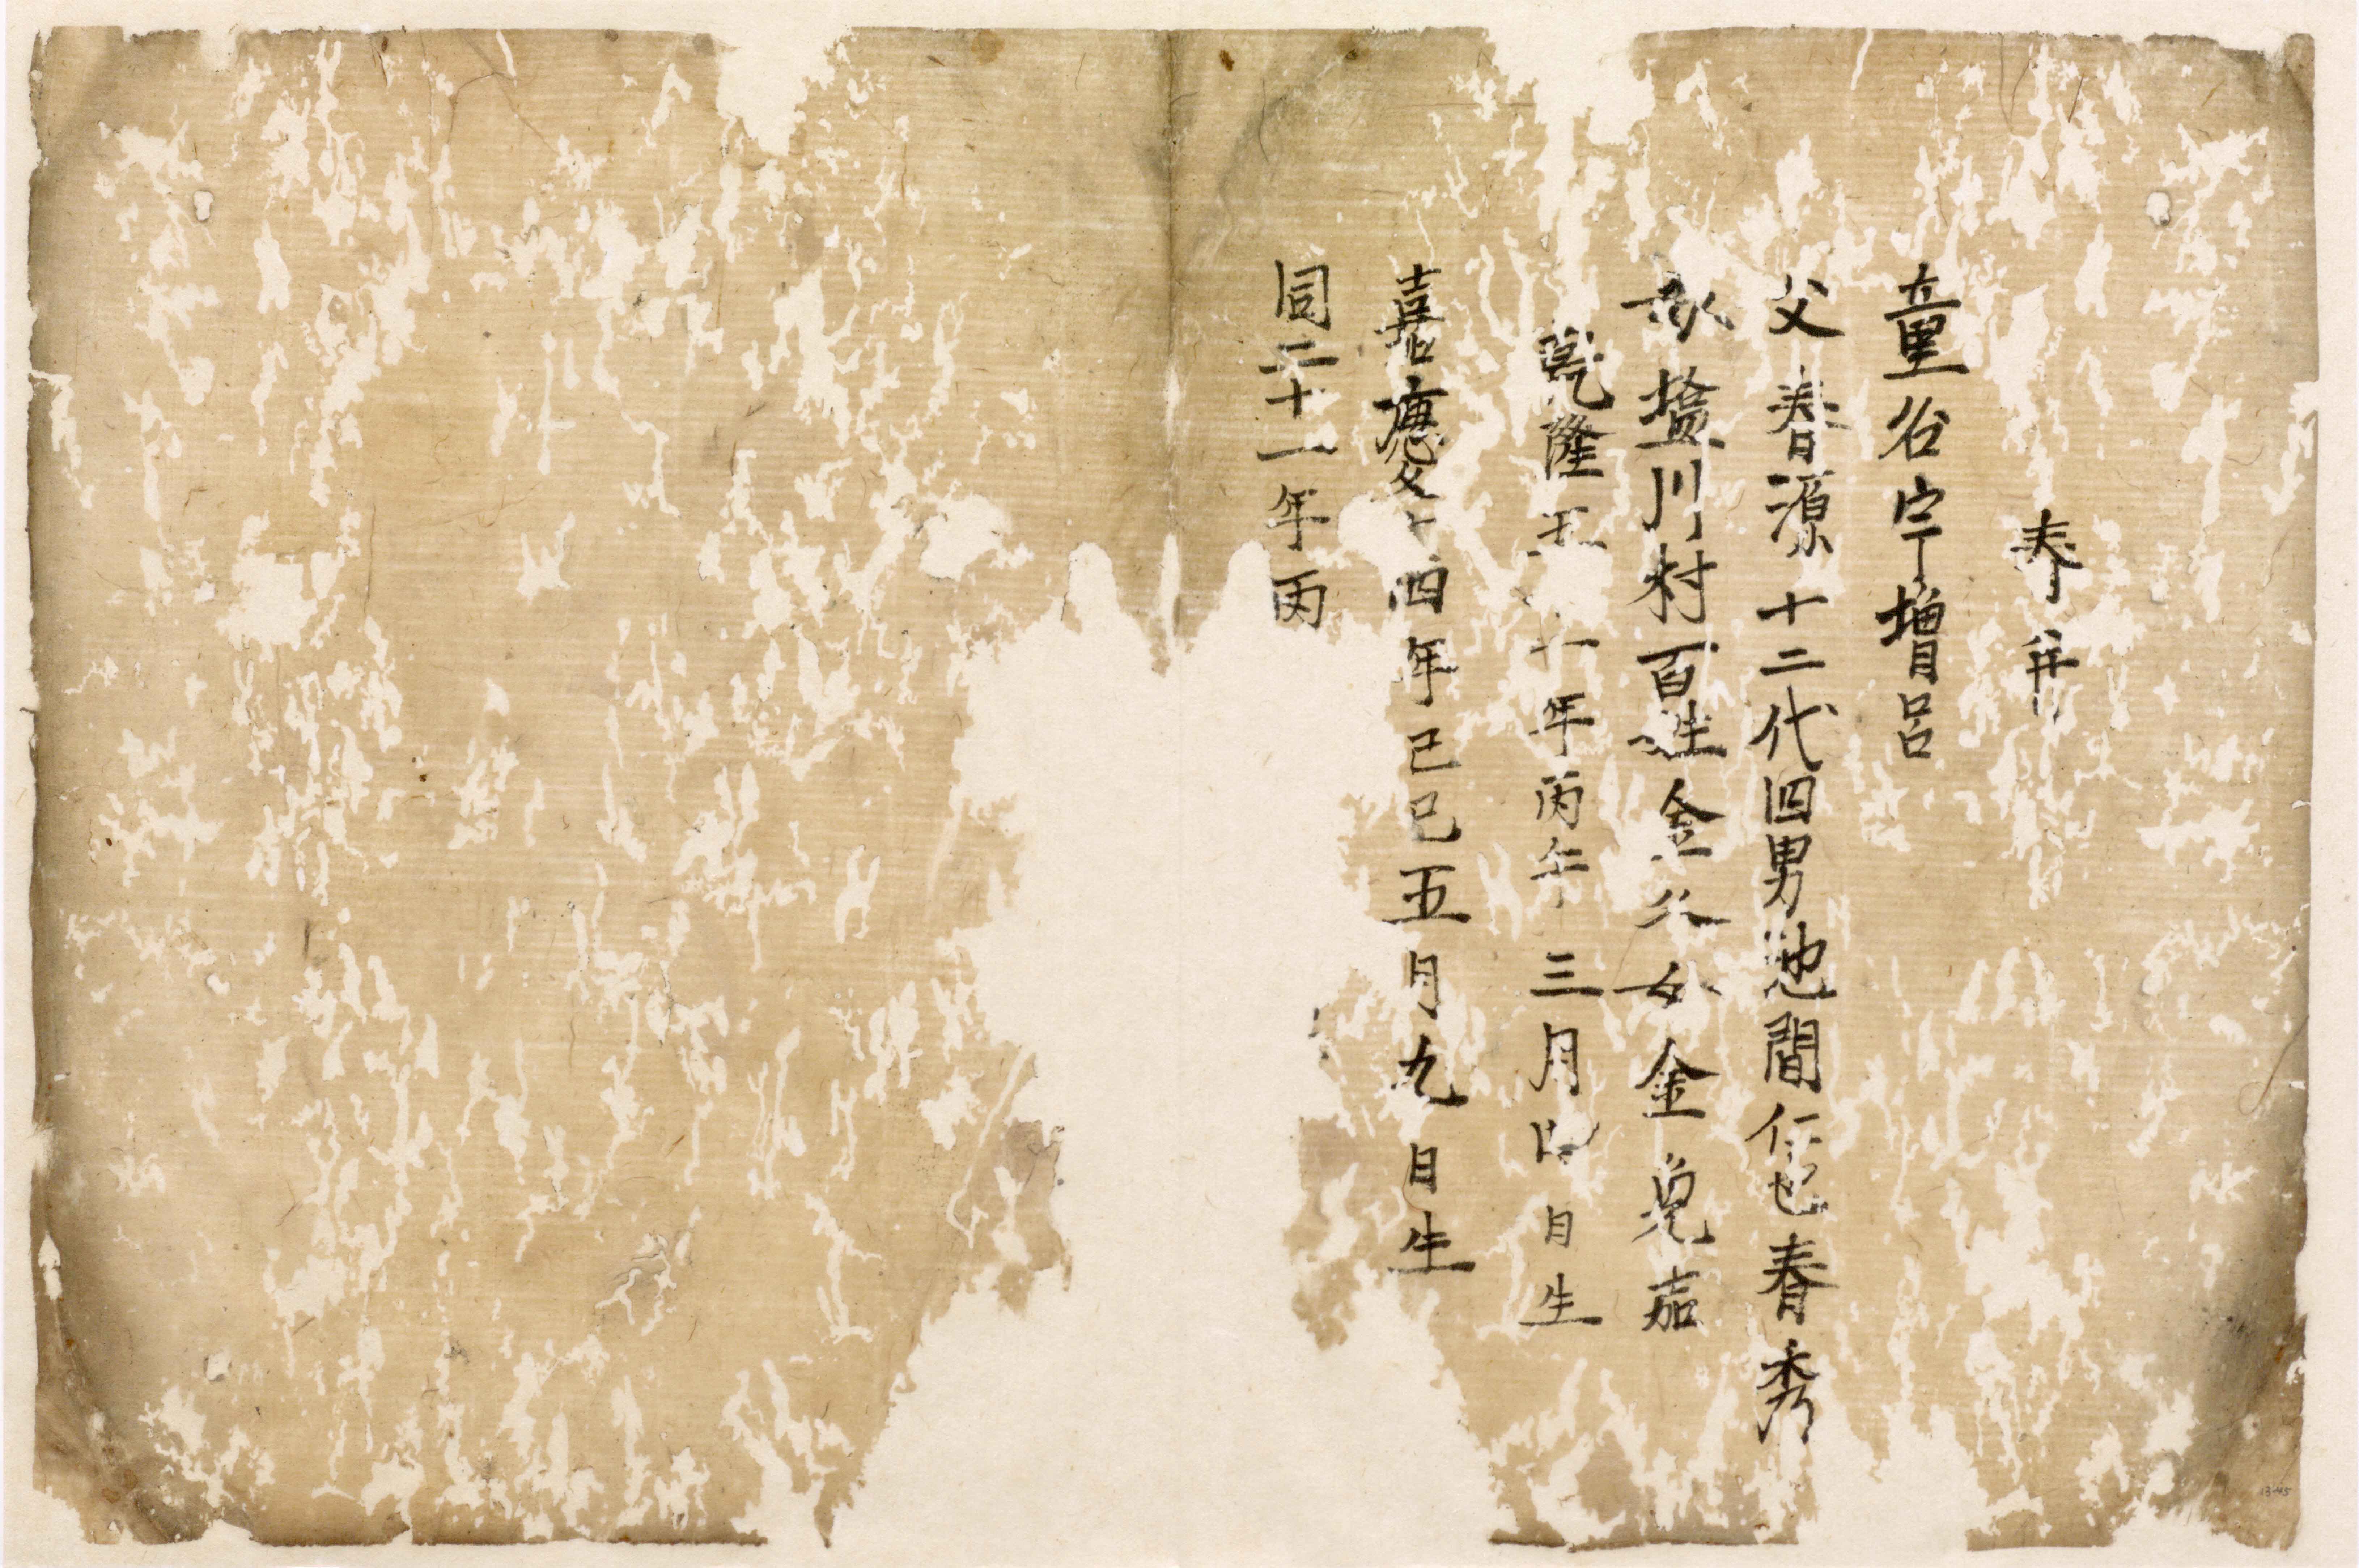 春昇
童名宇増呂
父春源十二代四男池間仁也春秀
母塩川村百姓金父女金免嘉
乾隆五十一年丙午三月四日生
嘉慶十四年己巳五月九日生
同二十一年丙
13-45